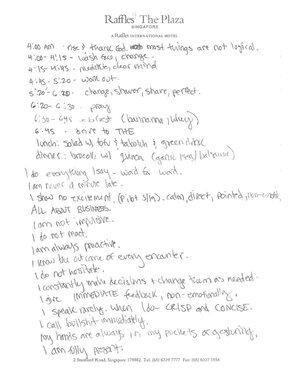 Raffles The Plaza
SINGAPORE
A Raffles INTERNATIONAL HOTEL
4:00 AM rise & thank God. most things are not logical.
4:00 - 4:15 - wash face, change.
4:15 - 4:45 - meditate, clear mind
4:45 - 5:20 - work out.
5:20 - 6:20 - change, shower, shave, perfect.
6:20 - 6:30 - pray
6:30 - 6:45 - (banana, whey)
6:45 - drive to THE
lunch: salad w/ tofu & & green disc
dinner: broccoli w/ quinoa (garlic)
I do everything I say - word for word.
I am never a minute late.
I show no excitement. calm, direct, pointed, non-
ALL ABOUT BUSINESS.
I am not impulsive.
I do not react.
I am always proactive.
I know the outcome of every encounter.
I do not hesitate.
I constantly make decisions & change them as needed.
I give IMMEDIATE feedback, non-emotionally.
I speak rarely. When I do - CRISP and CONCISE.
I call bullshit immediately.
My hands are always in my pockets or gesturing.
I am fully present.
2 Stamford Road, Singapore 178882. Tel: (65) 6339 7777 Fax: (65) 6337 1554